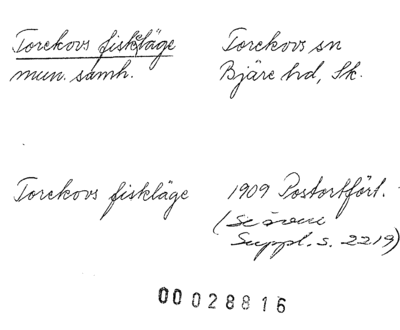 Torekovs fiskeläge
mun. samh.
Torekovs sn
Bjäre hd, Sk.
Torekovs fiskläge
1909 Postortfört.
(Se även
Suppl. s. 2219)
00028816